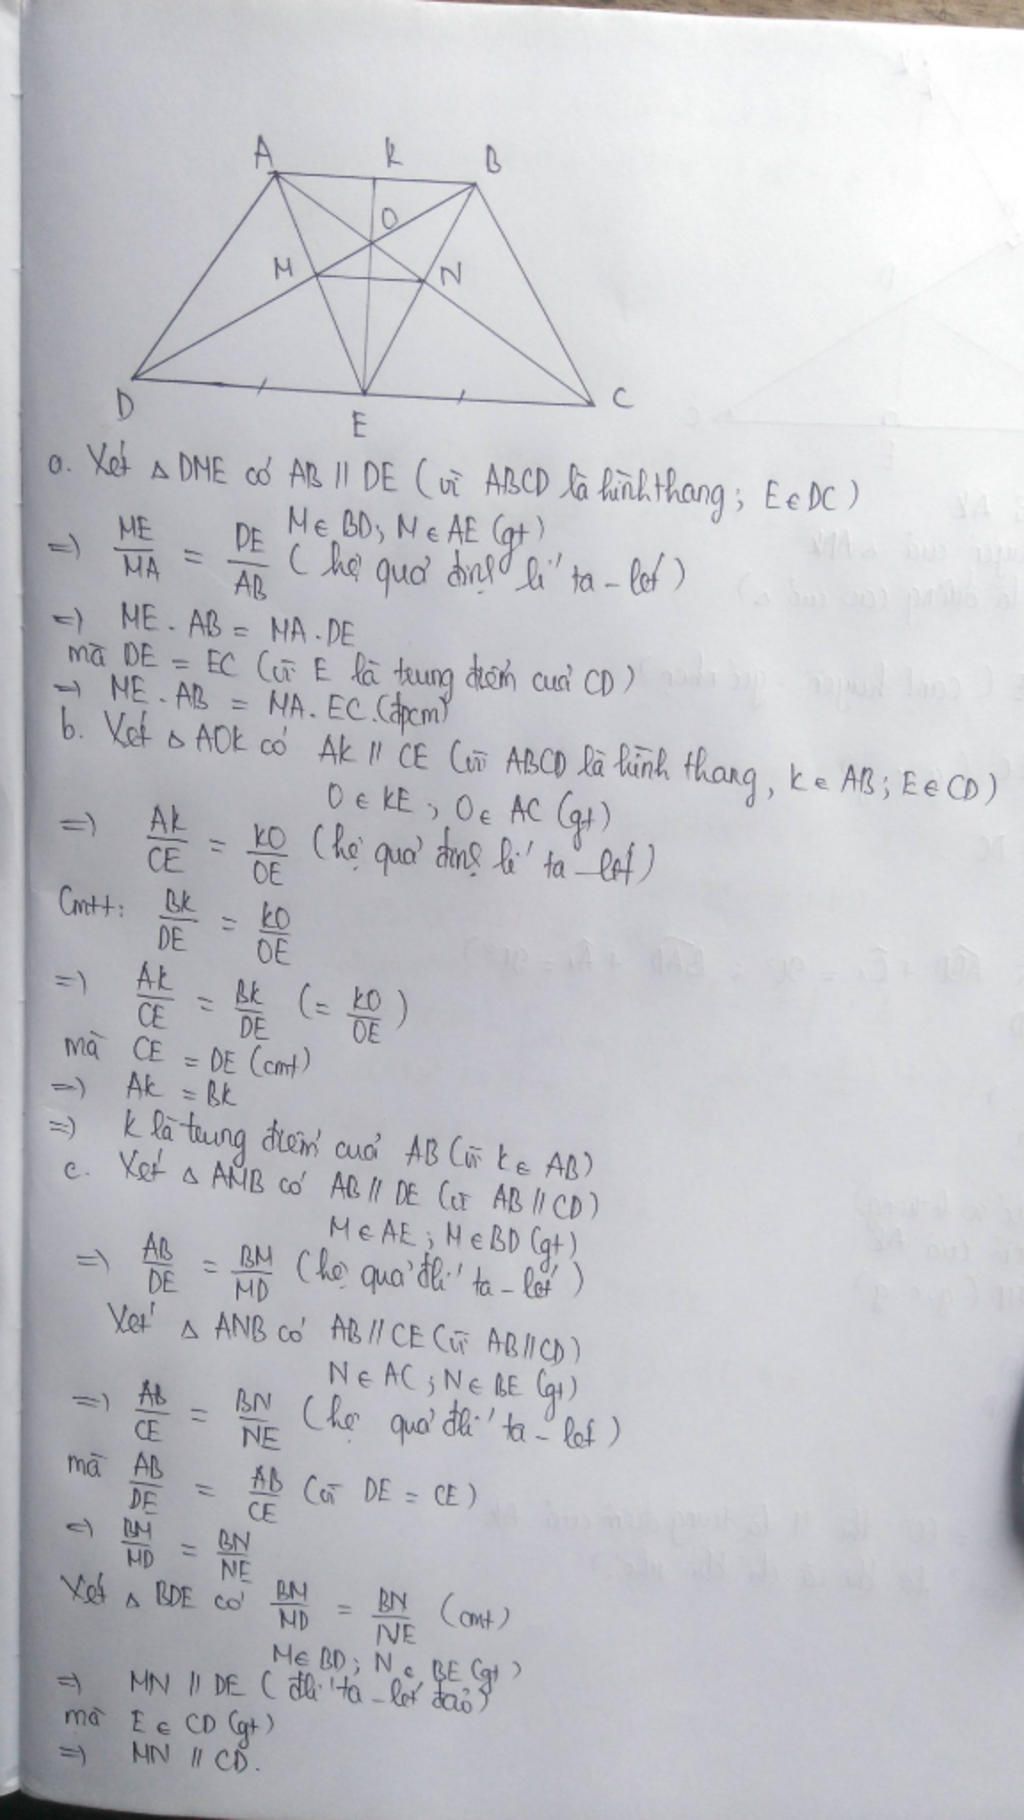 A K B
O
M N
D E C
a. Xét △ DME có AB // DE (vì ABCD là hình thang; E ∈ DC)
M ∈ BD; M ∈ AE (gt)
=> ME/MA = DE/AB (hệ quả định lí ta-lét)
=> ME . AB = MA . DE
mà DE = EC (vì E là trung điểm của CD)
=> ME . AB = MA . EC. (đpcm)
b. Xét △ AOK có AK // CE (vì ABCD là hình thang, K ∈ AB; E ∈ CD)
O ∈ KE; O ∈ AC (gt)
=> AK/CE = KO/OE (hệ quả định lí ta-lét)
Cmtt: BK/DE = KO/OE
=> AK/CE = BK/DE (= KO/OE)
mà CE = DE (cmt)
=> AK = BK
=> K là trung điểm của AB (vì K ∈ AB)
c. Xét △ AMB có AB // DE (vì AB // CD)
M ∈ AE; M ∈ BD (gt)
=> AB/DE = BM/MD (hệ quả đlí ta-lét)
Xét △ ANB có AB // CE (vì AB // CD)
N ∈ AC; N ∈ BE (gt)
=> AB/CE = BN/NE (hệ quả đlí ta-lét)
mà AB/DE = AB/CE (vì DE = CE)
=> BM/MD = BN/NE
Xét △ BDE có BM/MD = BN/NE (cmt)
M ∈ BD; N ∈ BE (gt)
=> MN // DE (đlí ta-lét đảo)
mà E ∈ CD (gt)
=> MN // CD.